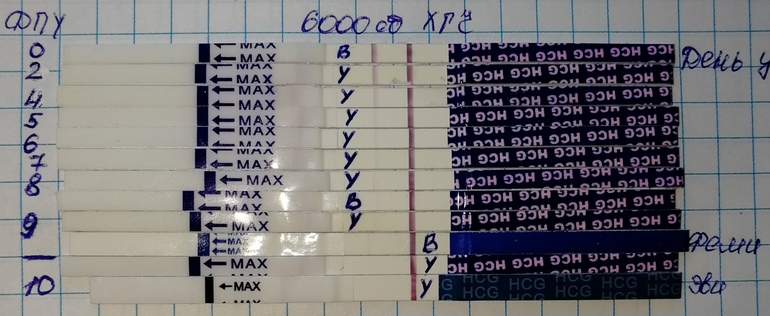 ФПУ 6000 ед ХГЧ
0 ← MAX ← MAX В HCG HCG HCG HCG HCG День у
2 ← MAX У HCG HCG HCG HCG HCG
4 ← MAX У HCG HCG HCG HCG HCG
5 ← MAX У HCG HCG HCG HCG HCG
6 ← MAX У HCG HCG HCG HCG HCG
7 ← MAX У HCG HCG HCG HCG HCG
8 ← MAX У HCG HCG HCG HCG HCG
← MAX ← MAX В HCG HCG HCG HCG HCG
9 ← MAX У HCG HCG HCG HCG HCG
← MAX ← MAX В
← MAX У HCG HCG HCG HCG HCG
10 ← MAX У HCG HCG HCG HCG HCG Эви